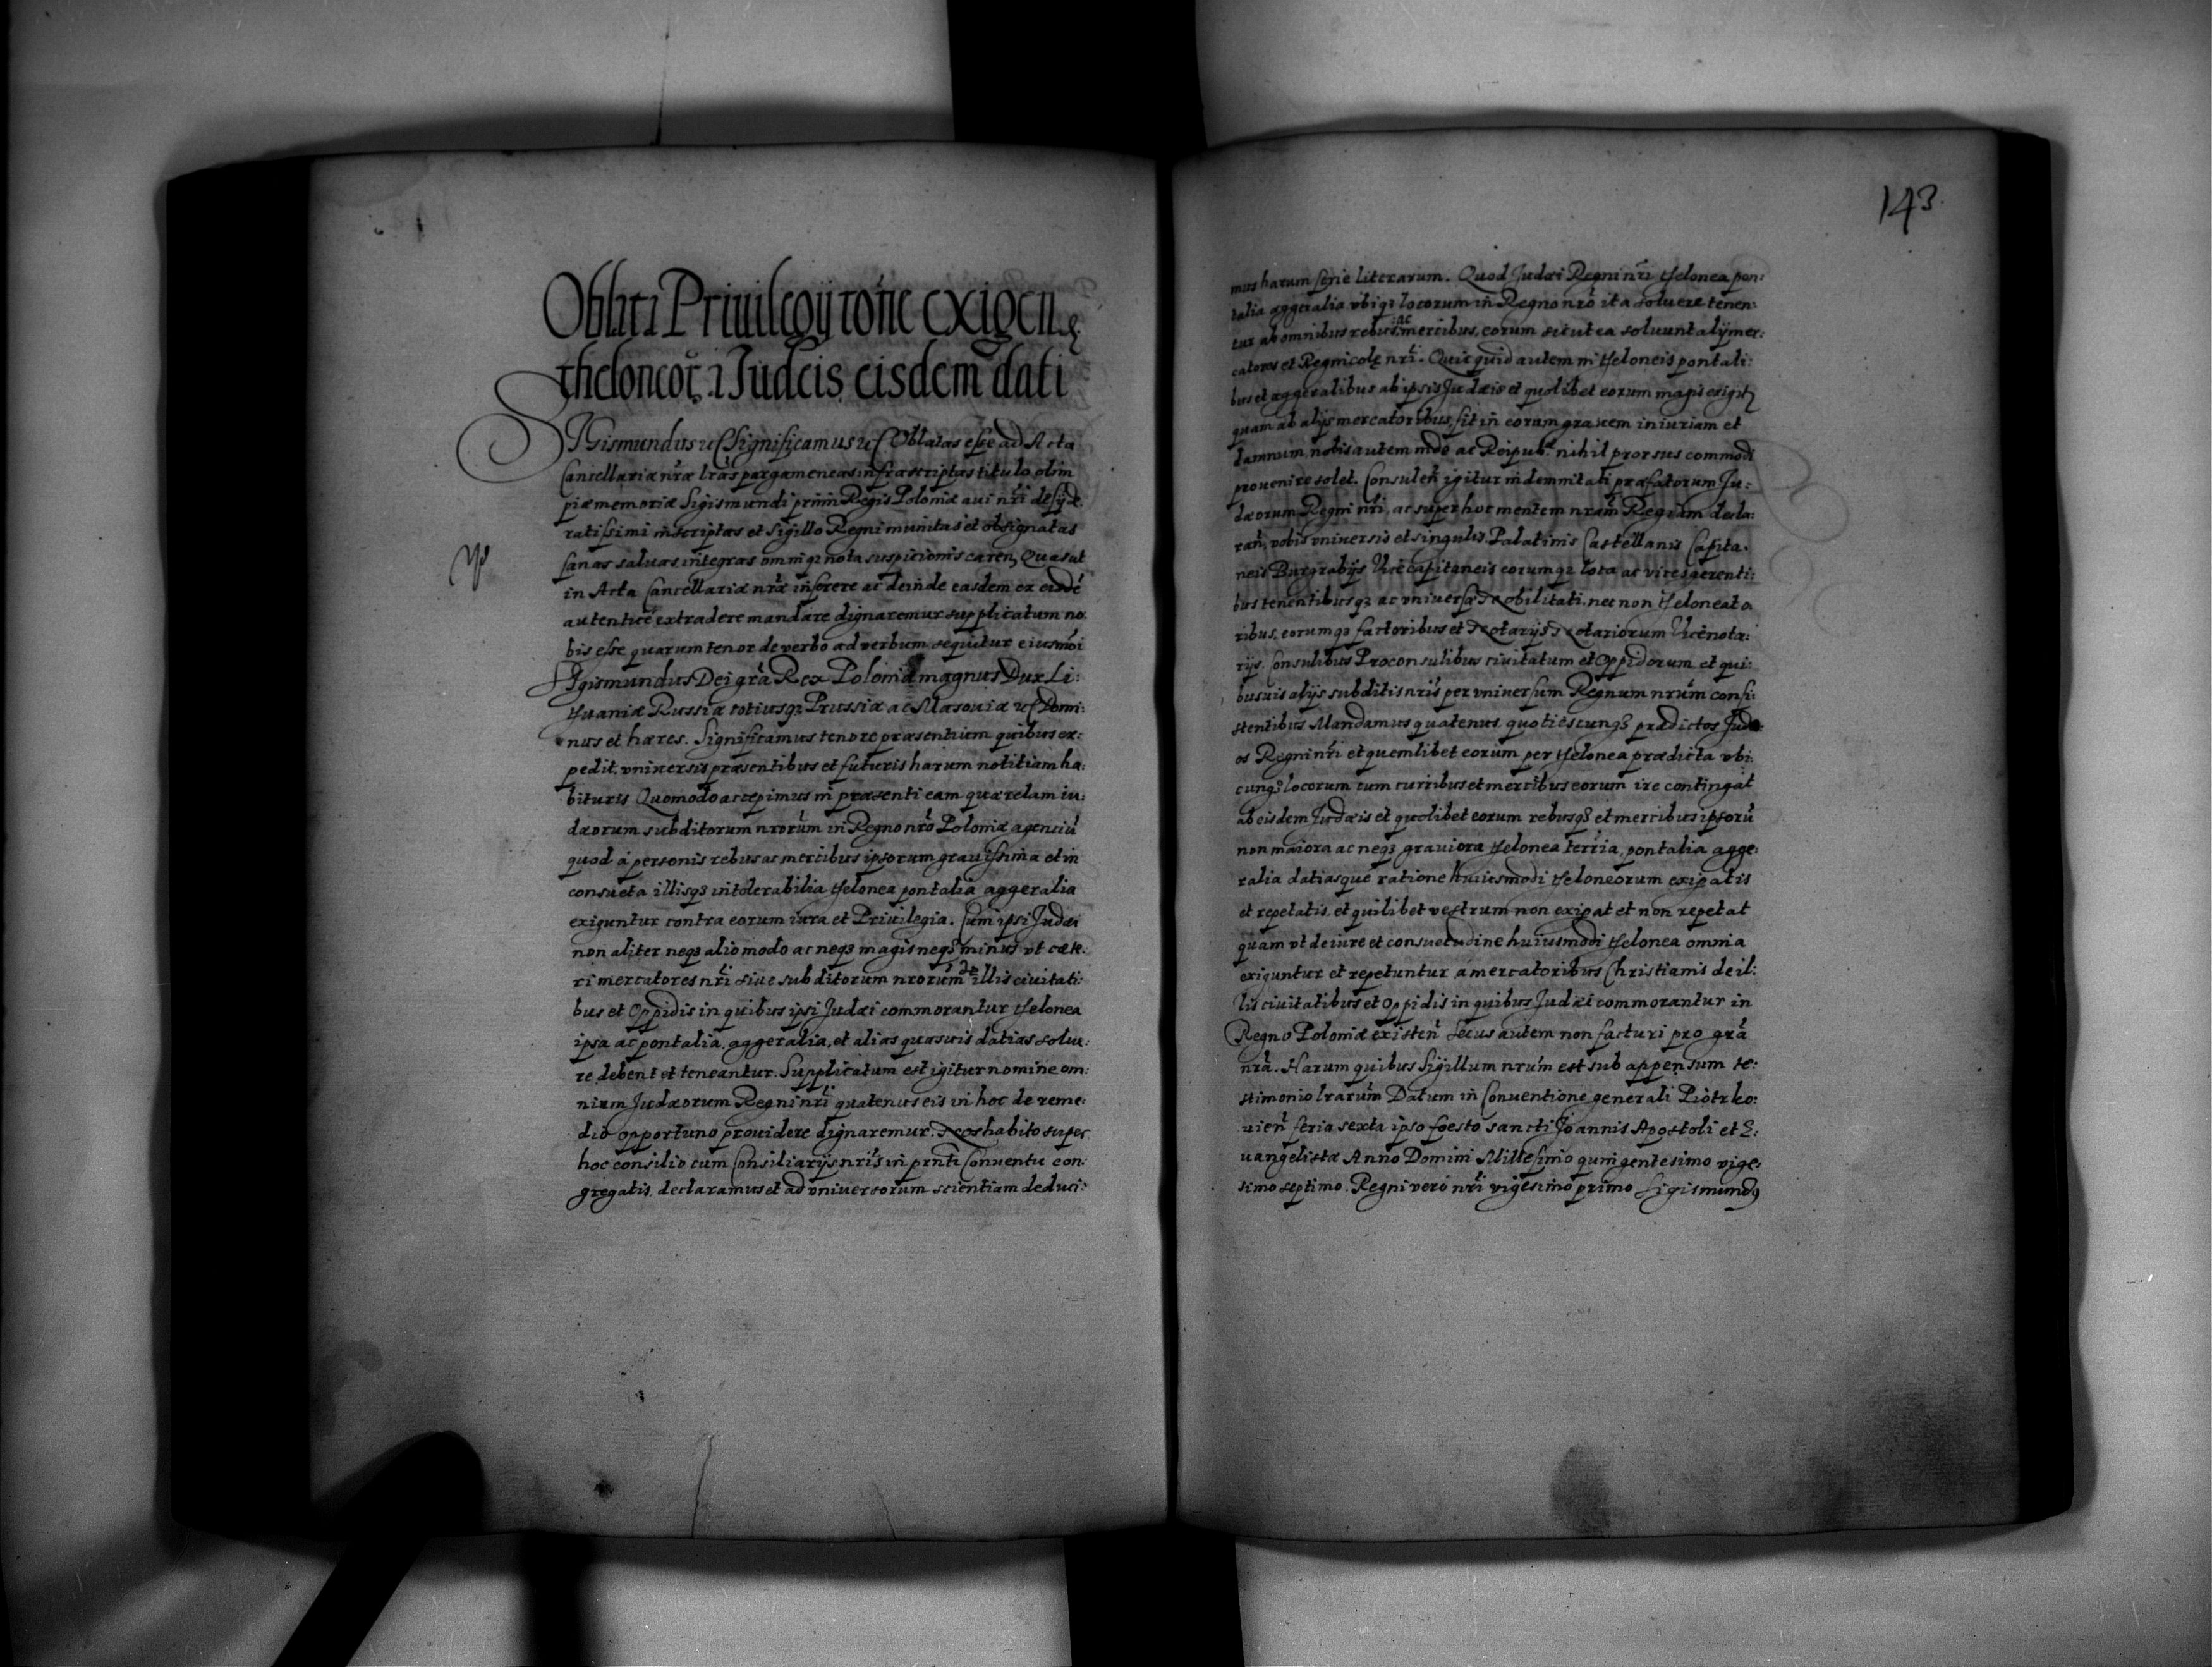 Oblati Priuilegij rōne exigen.
theloneor. i Judeis eisdem dati
SIGismundus etc Significamus etc Oblatas esse ad Acta
Cancellariæ nrae lras pargameneas infrascriptas titulo olim
piæ memoriæ Sigismundi primi Regis Poloniæ aui nri desyde
ratissimi inscriptas et Sigillo Regni munitas et obsignatas
sanas saluas integras omniq3 nota suspitionis caren, Quas ut
in Acta Cancellariæ nræ inserere ac deinde easdem ex eisdē
autenticē extradere mandare dignaremur supplicatum no
bis esse quarum tenor de verbo ad verbum sequitur eiusmōi
SIgismundus Dei grā Rex Poloniæ magnus Dux Li:
thuaniæ Russiæ totiusq3 Prussiæ ac Masouiæ etc Domi:
nus et hæres. Significamus tenore præsentium quibus ex:
pedit, vniuersis præsentibus et futuris harum notitiam ha:
bituris Quomodo accepimus in præsenti eam quærelam iu:
dæorum subditorum nrorum in Regno nrō Poloniæ agenciū
quod à personis rebus ac mercibus ipsorum grauissima et in
consueta illisq3 intolerabilia thelonea pontalia aggeralia
exiguntur contra eorum iura et Priuilegia. Cum ipsi Judæi
non aliter neq3 alio modo ac neq3 magis neq3 minus vt cæte:
ri mercatores nri siue subditorum nrorum de illis ciuitati:
bus et Oppidis in quibus ipsi Judæi commorantur thelonea
ipsa ac pontalia, aggeralia, et alias quasuis datias solue:
re debent et teneantur. Supplicatum est igitur nomine om:
nium Judæorum Regni nri quatenus eis in hoc de reme:
dio opportuno prouidere dignaremur. Nos habito super
hoc consilio cum Consiliarijs nris in prnti Conuentu con:
gregatis, declaramus et ad vniuersorum scientiam deduci:
143.
mus harum serie literarum. Quod Judæi Regni nri thelonea pon:
talia aggeralia vbiq3 locorum in Regno nrō ita soluere tenen:
tur ab omnibus rebus ac mercibus, eorum sicut ea soluunt alij mer:
catores et Regnicolę nri. Quicquid autem in theloneis pontali:
bus et aggeralibus ab ipsis Judæis et quolibet eorum magis exigitr
quam ab alijs mercatoribus, fit in eorum grauem iniuriam et
damnum, nobis autem mdo ac Reipub. nihil prorsus commodi
prouenire solet. Consulen igitur indemnitati præfatorum Ju:
dæorum Regni nri, ac super hoc mentem nram Regiam decla:
ran, vobis vniuersis et singulis Palatinis Castellanis Capita:
neis Burgrabijs Vicecapitaneis eorumq3 loca ac vices gerenti:
bus tenentibusq3 ac vniuersæ Nobilitati, nec non theloneato
ribus, eorumq3 factoribus et Notarijs, Notariorum Vicenota:
rijs, Consulibus Proconsulibus ciuitatum et Oppidorum et qui:
busuis alijs subditis nris per vniuersum Regnum nrum consi:
stentibus Mandamus quatenus, quotiescunq3 prædictos Judæ
os Regni nri et quemlibet eorum per thelonea prædicta vbi:
cunq3 locorum cum curribus et mercibus eorum ire contingat
ab eisdem Judæis et quolibet eorum rebusq3 et mercibus ipsorū
non maiora ac neq3 grauiora thelonea terria, pontalia agge:
ralia datiasque ratione huiusmodi theloneorum exigatis
et repetatis, et quilibet vestrum non exigat et non repetat
quam vt de iure et consuetudine huiusmodi thelonea omnia
exiguntur et repetuntur à mercatoribus Christianis de il:
lis ciuitatibus et Oppidis in quibus Judæi commorantur in
Regno Poloniæ existen Secus autem non facturi pro grā
nrā. Harum quibus Sigillum nrum est sub appensum te:
stimonio lrarum Datum in Conuentione generali Piotrko:
uien feria sexta ipso foesto sancti Joannis Apostoli et E:
uangelistæ Anno Domini Millesimo quingentesimo vige:
simo septimo. Regni vero nri vigesimo primo Sigismundus